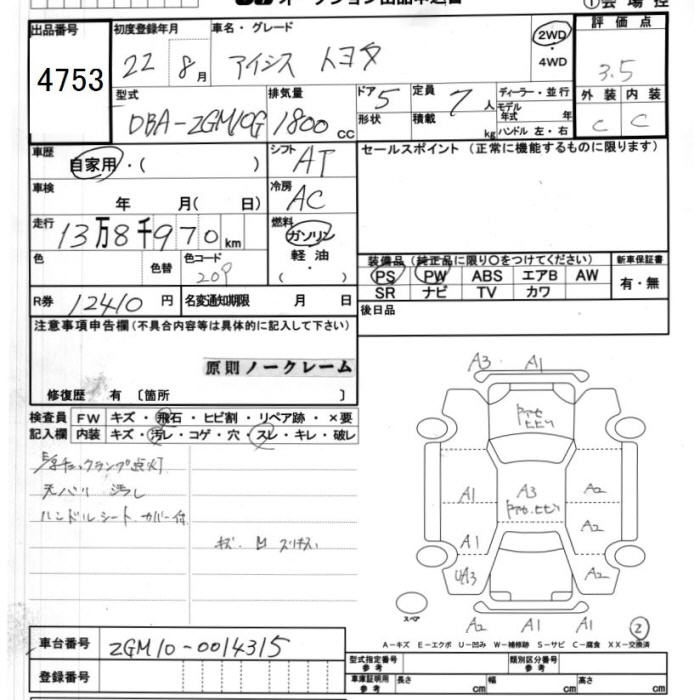 出品番号 初度登録年月 車名・グレード 2WD 評価点
4753 22 8月 アイシス トヨタ ・ 4WD 3.5
型式 排気量 ドア 5 定員 7人 ディーラー・並行 外装 内装
DBA-ZGM10G 1800cc 形状 積載 kg モデル年式 年 C C
ハンドル 左・右
車歴 自家用・( ) シフト AT セールスポイント (正常に機能するものに限ります)
車検 年 月( 日) 冷房 AC
走行 13万8千970km 燃料 ガソリン 軽油 ・ ( )
色 色替 色コード 209 装備品 (純正品に限り〇をつけてください) 新車保証書
PS PW ABS エアB AW 有・無
SR ナビ TV カワ
R券 12410円 名変通知期限 月 日 後日品
注意事項申告欄(不具合内容等は具体的に記入して下さい)
原則ノークレーム
修復歴 有 〔箇所 〕
検査員 FW キズ・飛石・ヒビ割・リペア跡・×要
記入欄 内装 キズ・汚レ・コゲ・穴・スレ・キレ・破レ
チェックランプ点灯
天バリ 汚れ
ハンドル.シート カバー付
キズ. 凹
A3 A1
A3
A1 A2
A2
A1
UA3 A2
スペア A2 A1 A1 2
A-キズ E-エクボ U-凹み W-補修跡 S-サビ C-腐食 XX-交換済
車台番号 ZGM10-0014315
型式指定番号 参考 類別区分番号 参考
登録番号 車庫証明用 参考 長さ cm 幅 cm 高さ cm